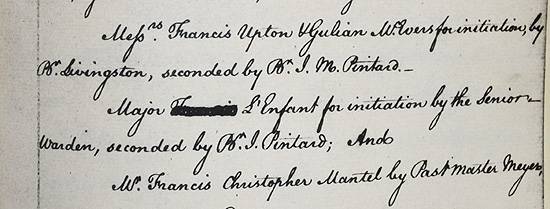 Messrs Francis Upton & Gulian McEvers for initiation, by
Br Livingston, seconded by Br J. M. Pintard. —
Major L'Enfant for initiation by the Senior
Warden, seconded by Br J. Pintard; And
Mr Francis Christopher Mantel by Past Master Meyer,